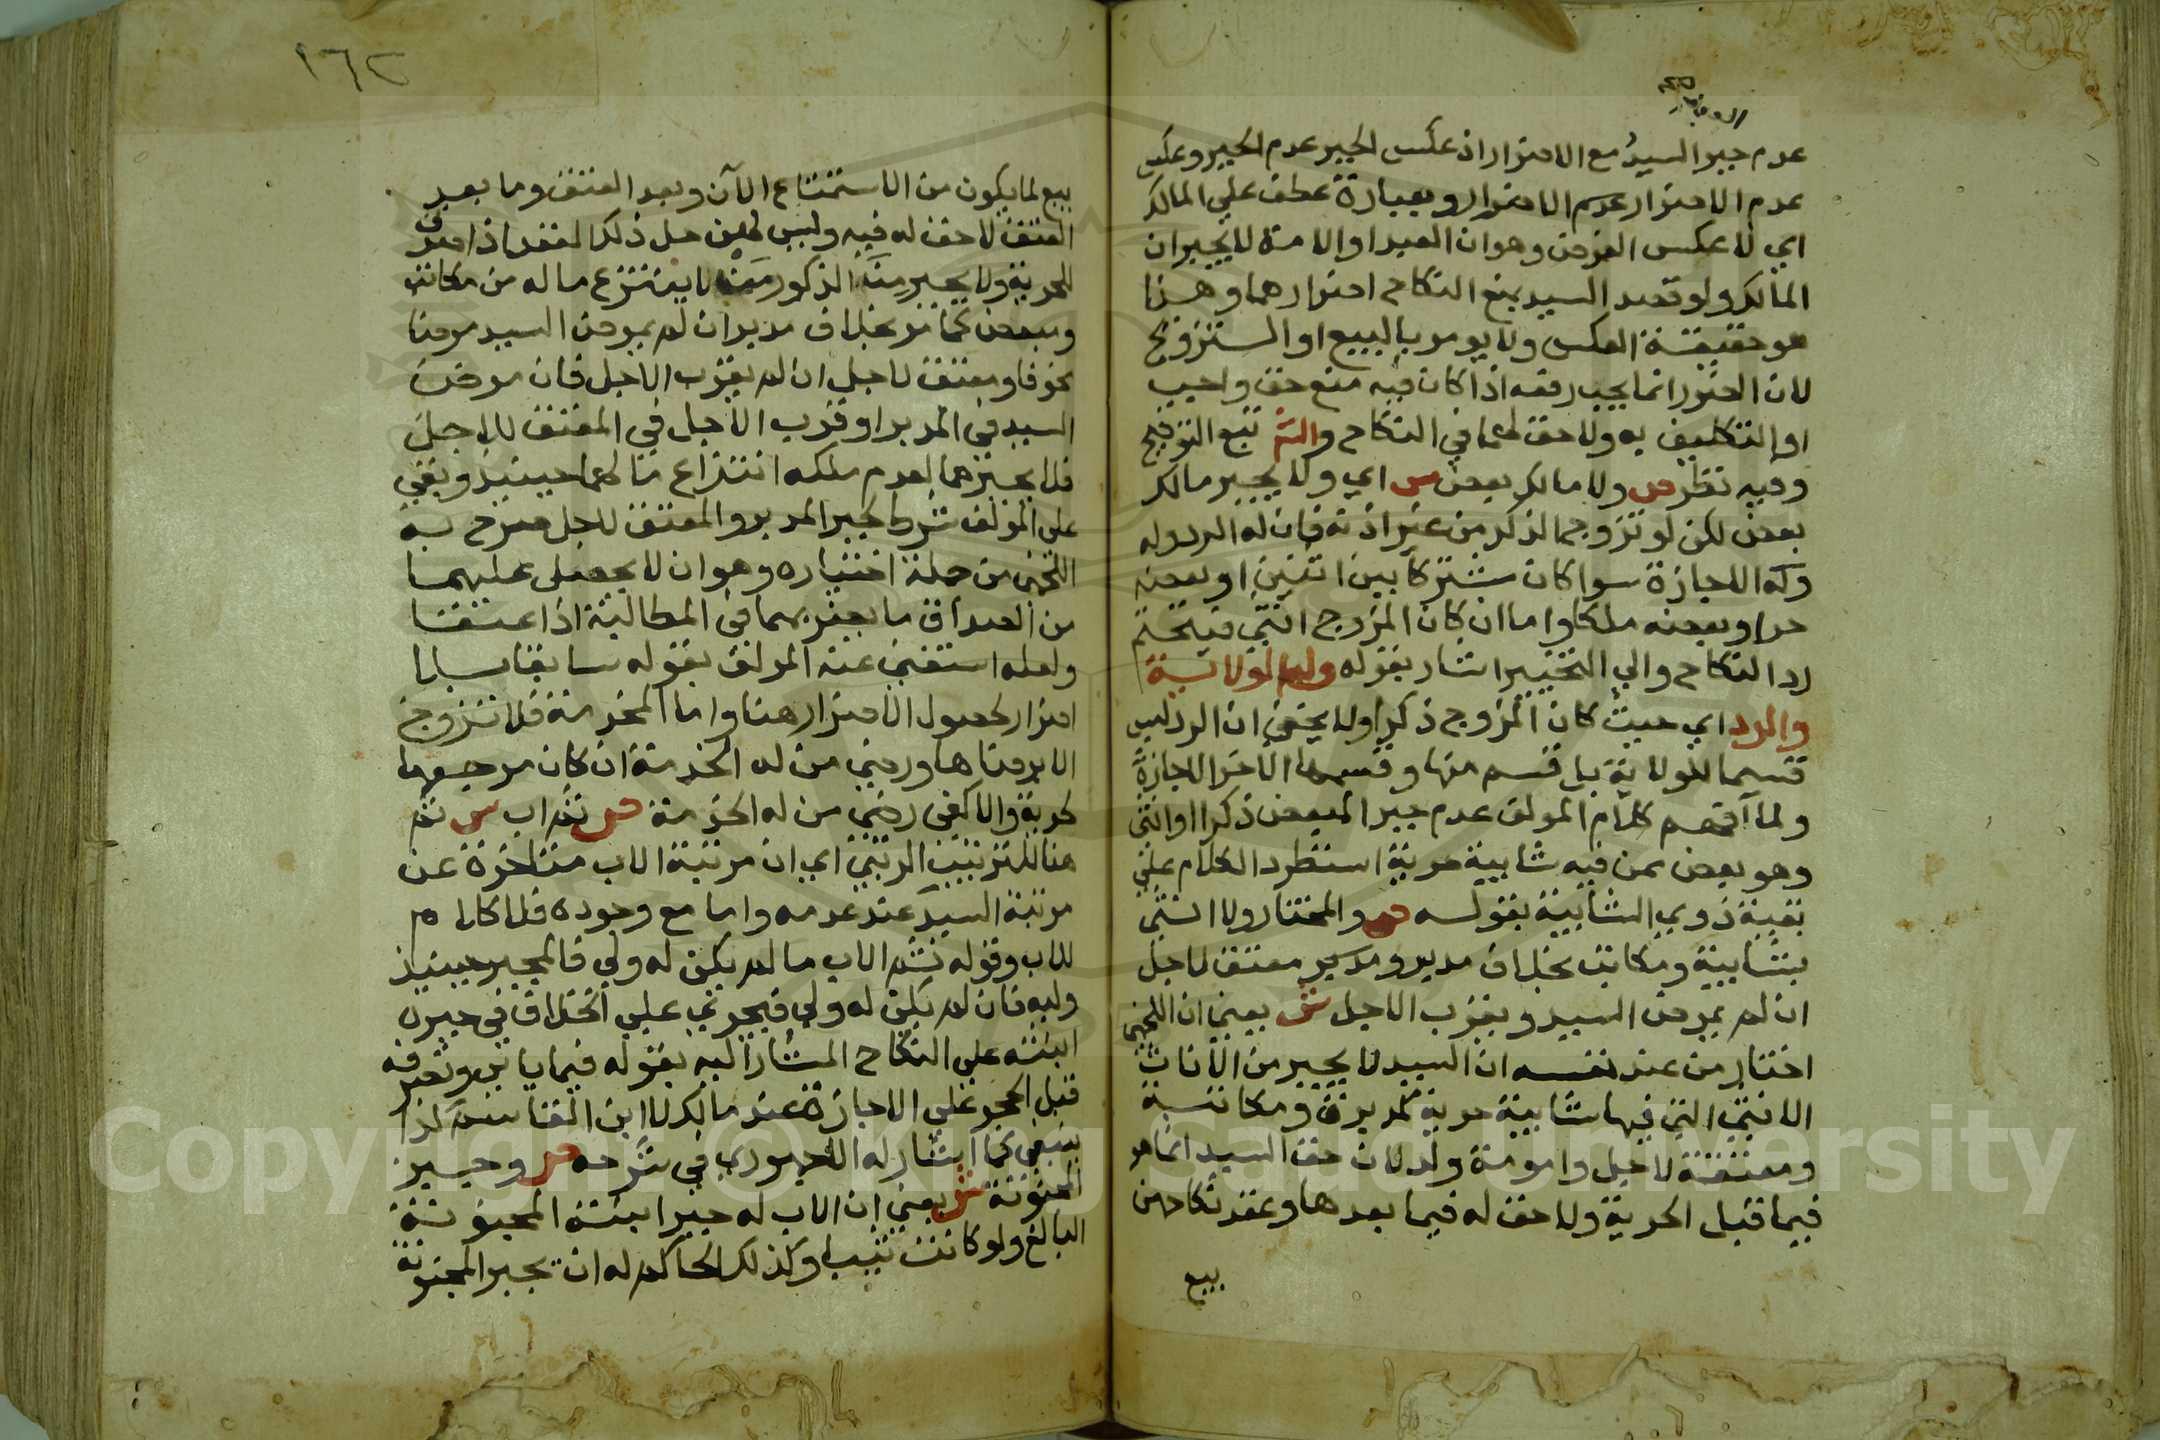 عدم جبر السيد مع الاضرار اذ عكس الجبر عدم الجبر وعكس
عدم الاضرار عدم الاضرار وبعبارة عطف علي المالك
اي لا عكس الفرض وهو ان العبد او الامة لا يجبران
المالك ولو قصد السيد بمنع النكاح اضرارهما وهذا
هو حقيقة العكس ولا يومر بالبيع او التزويج
لان الضرر انما يجب رفعه اذا كان فيه منع حق واجب
او التكليف به ولا حق لهما في النكاح و تبع التوضيح
وفيه نظر ص ولا مالك بعض ش اي ولا يجبر مالك
بعض لكن لو تزوج الذكر من غير اذنه فان له الرد وله
وله الاجازة سوا كان مشتركا بين اثنين او بعضه
حرا وبعضه ملكا واما ان كان المزوج انثى فيتحتم
رد النكاح والي التخيير اشار بقوله وله الولاية
والرد اي حيث كان المزوج ذكرا ولا يخفى ان الرد ليس
قسيما للولاية بل قسم منها وقسيمه الاخر الاجازة
ولما افهم كلام المولف عدم جبر المبعض ذكرا او انثى
وهو بعض من فيه شايبة حرية استطرد الكلام علي
بقية ذوي الشايبة بقوله ص والمختار ولا انثى
بشايبة ومكاتب بخلاف مدبر ومعتق لاجل
ان لم يمرض السيد ويقرب الاجل ش يعني ان اللخمي
اختار من عند نفسه ان السيد لا يجبر من الاناث
الانثى التي فيها شايبة حرية كمدبرة ومكاتبة
ومعتقة لاجل وام ولد لان حق السيد انما هو
فيما قبل الحرية ولا حق له فيما بعدها وعقد نكاحهن
بيع
١٦٢
بيع لما يكون من الاستمتاع الآن وبعد العتق وما بعد
العتق لا حق له فيه وليس لهن حل ذلك العقد اذا صرن
للحرية ولا يجبر من الذكور من لا ينتزع ماله من مكاتب
ومبعض كما مر بخلاف مدبر ان لم يمرض السيد مرضا
مخوفا ومعتق لاجل ان لم يقرب الاجل فان مرض
السيد في المدبر او قرب الاجل في المعتق للاجل
فلا يجبرهما لعدم ملكه انتزاع مالهما حينيذ وبقي
على المولف شرط لجبر المدبر والمعتق لاجل صرح به
اللخمي من جملة اختياره وهو ان لا يحصل عليهما
من الصداق ما يضر بهما في المطالبة اذا عتقا
ولعله استغنى عنه المولف بقوله سابقا بلا
اضرار لحصول الاضرار هنا واما المخدمة فلا تزوج
الا برضاها ورضي من له الخدمة ان كان مرجعها
لحرية والا كفى رضي من له الخدمة ص ثم اب ش ثم
هنا للترتيب الرتبي اي ان مرتبة الاب متاخرة عن
مرتبة السيد عند عدمه واما مع وجوده فلا كلام
للاب وقوله ثم الاب ما لم يكن له ولي فالمجبر حينيذ
وليه فان لم يكن له ولي فيجري علي الخلاف في جبره
ابنته علي النكاح المشار اليه بقوله فيما ياتي وتصرفه
قبل الحجر علي الاجازة عند مالك لا ابن القاسم كذا
ينبغي كما اشار له الاجهوري في شرحه ص وجبر
المجنونة ش يعني ان الاب له جبر ابنته المجنونة
البالغ ولو كانت ثيبا وكذلك الحاكم له ان يجبر المجنونة
Copyright © King Saud University